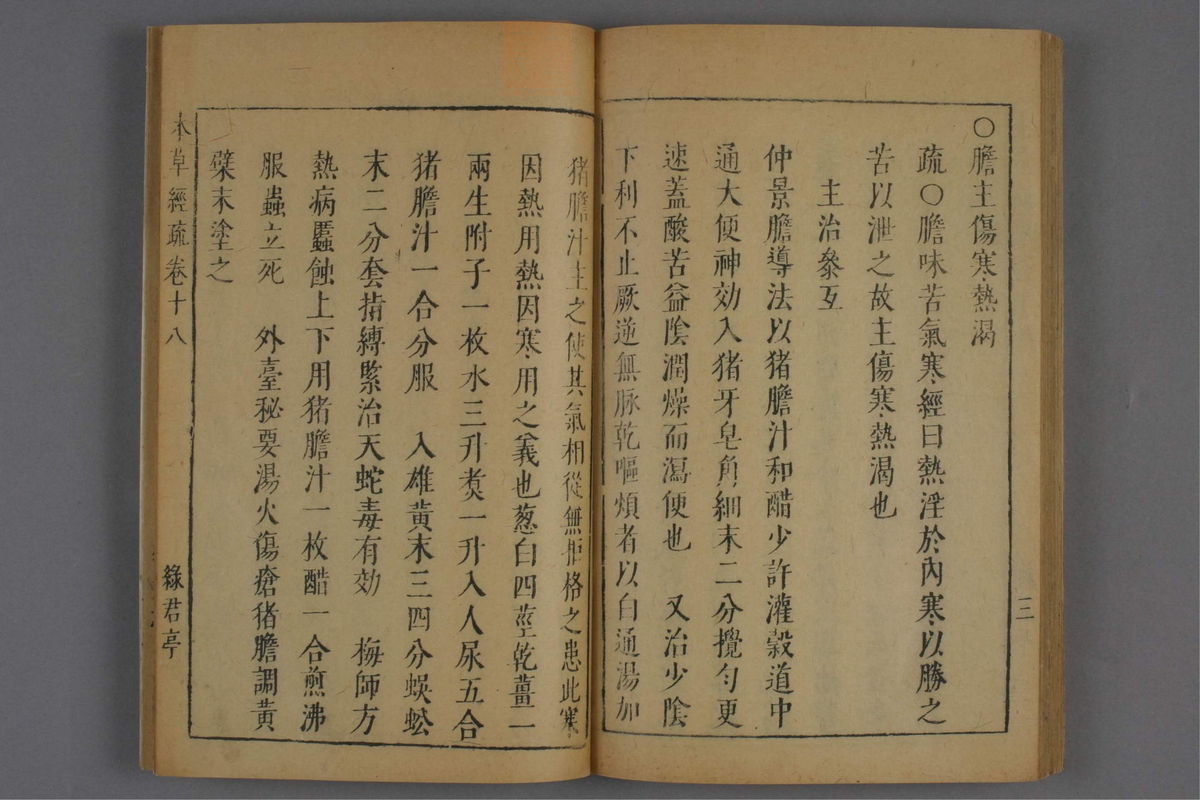 〇膽主傷寒熱渴
疏〇膽味苦氣寒經曰熱淫於內寒以勝之
苦以泄之故主傷寒熱渴也
主治叅互
仲景膽導法以猪膽汁和醋少許灌穀道中
通大便神効入猪牙皂角細末二分攪勻更
速蓋酸苦益陰潤燥而瀉便也　又治少陰
下利不止厥逆無脉乾嘔煩者以白通湯加
三
猪膽汁主之使其氣相從無拒格之患此寒
因熱用熱因寒用之義也葱白四莖乾薑一
兩生附子一枚水三升煑一升入人尿五合
猪膽汁一合分服　入雄黃末三四分蜈蚣
末二分套指縛緊治天蛇毒有効　梅師方
熱病䘌蝕上下用猪膽汁一枚醋一合煎沸
服蟲立死　外臺秘要湯火傷瘡猪膽調黃
檗末塗之
本草經疏卷十八
綠君亭